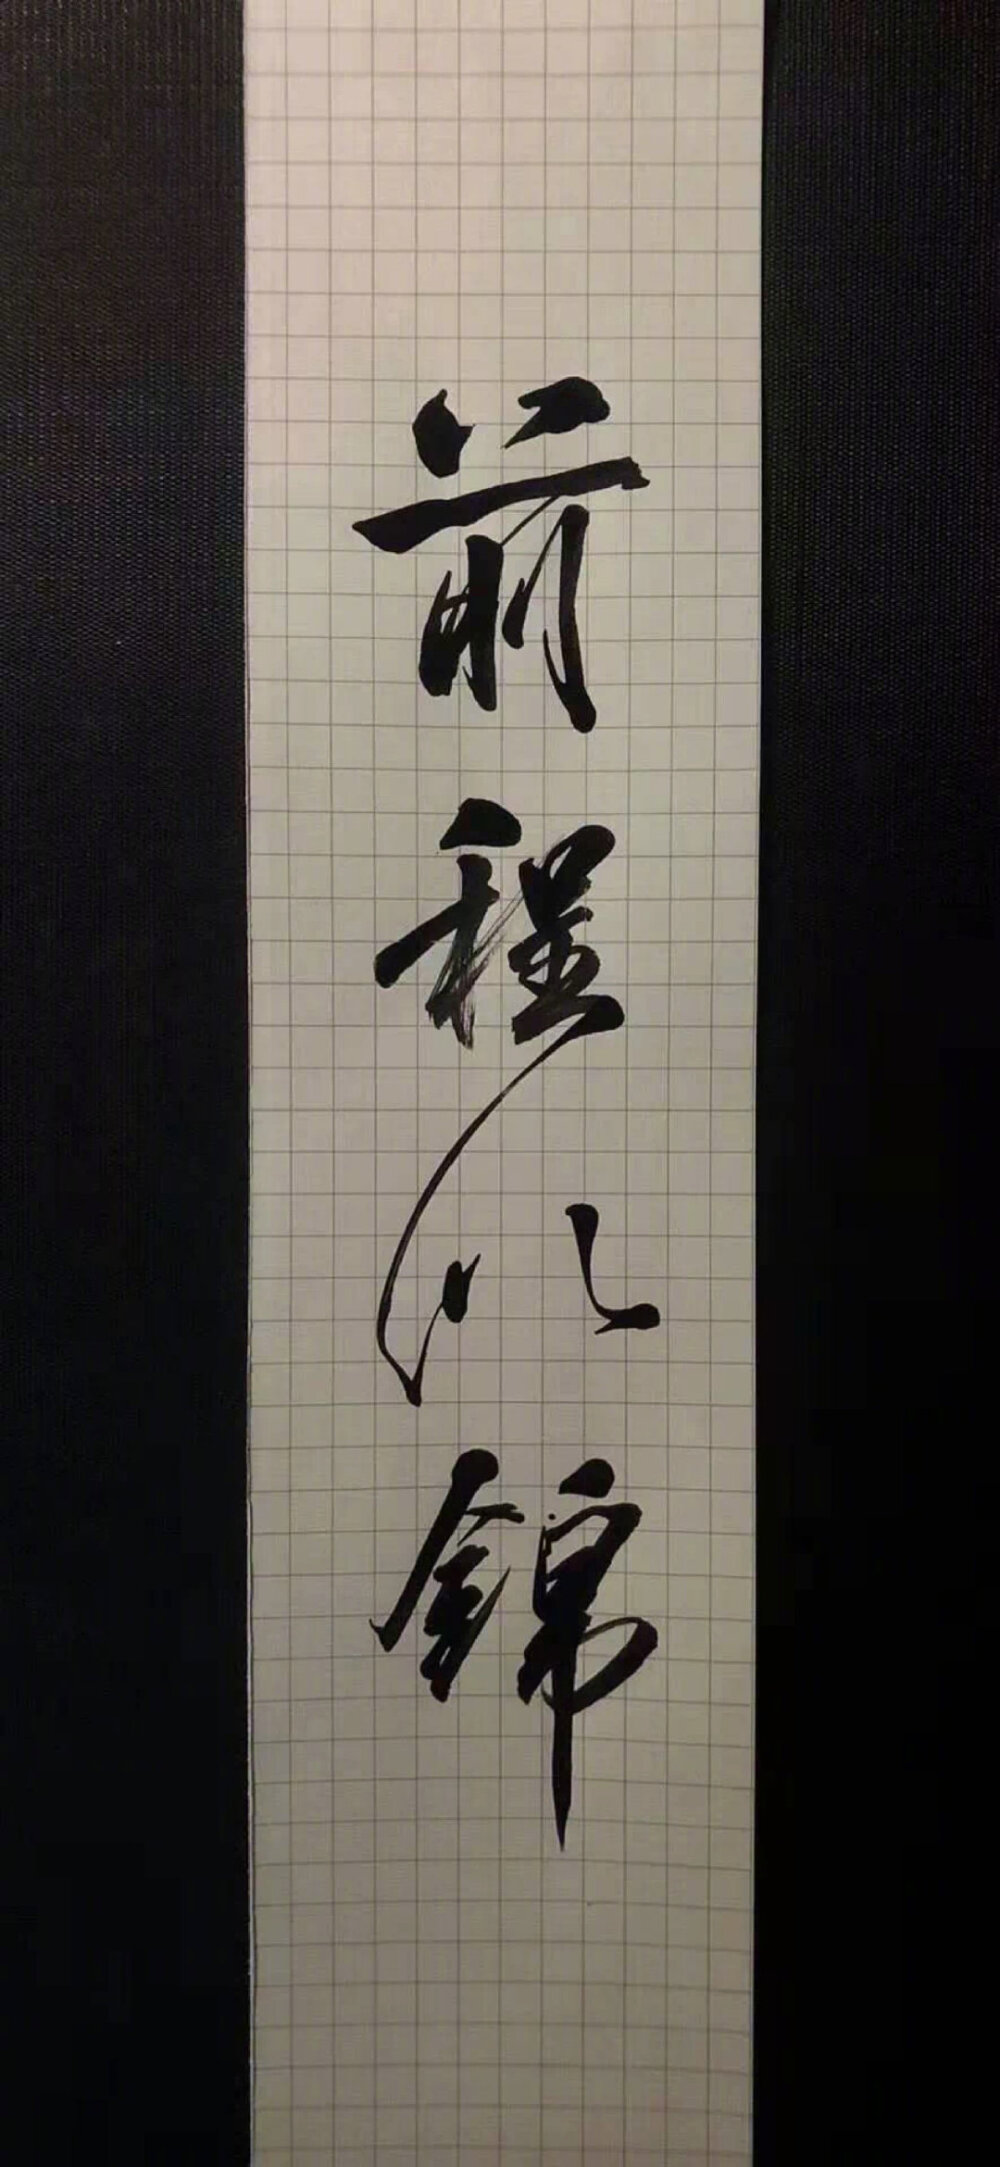 前程似錦